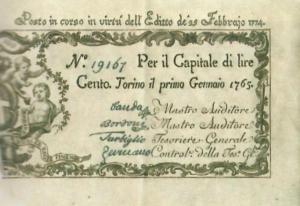 Posto in corso in virtú dell'Editto de' 25 Febbrajo 1774.
N.° 19167 Per il Capitale di lire
Cento. Torino il primo Gennaio 1765.
Mastro Auditore
Mastro Auditore
Tesoriere Generale
Control.e della Tes.a G.le